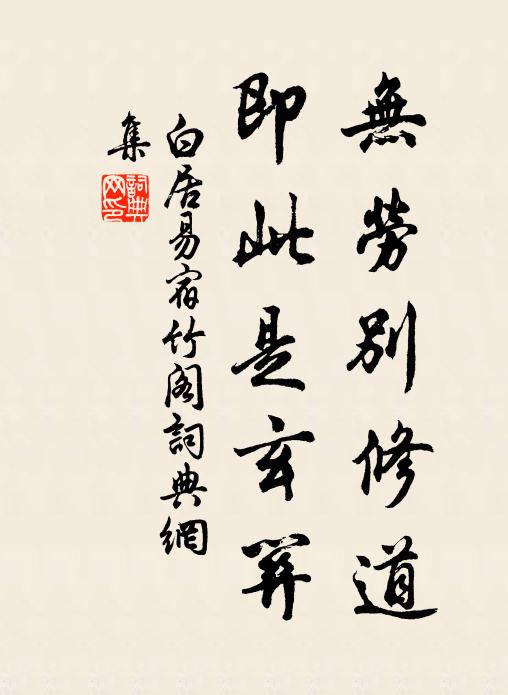 無勞别修道
即此是玄關
白居易宿竹閣詞典網
集
詞典
网印